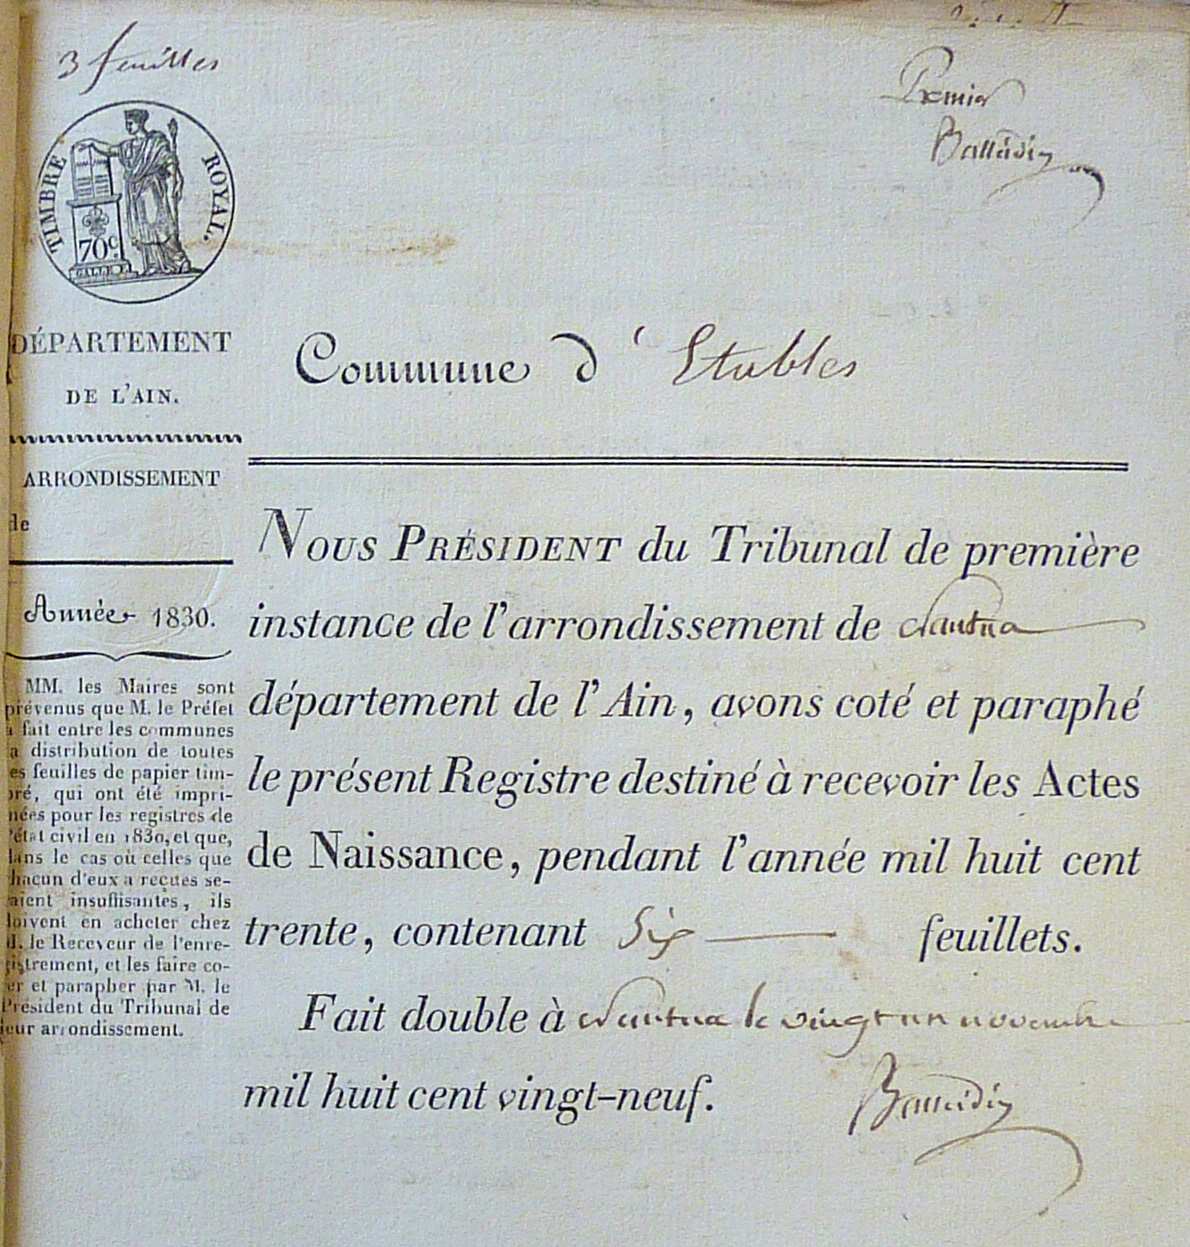 3 feuilles
Premier
TIMBRE ROYAL.
70c.
DÉPARTEMENT
DE L'AIN.
Commune d'Etables
ARRONDISSEMENT
de
Année 1830.
MM. les Maires sont
prévenus que M. le Préfet
a fait entre les communes
la distribution de toutes
es feuilles de papier tim-
bré, qui ont été impri-
mées pour les registres de
l'état civil en 1830, et que,
dans le cas où celles que
chacun d'eux a reçues se-
raient insuffisantes, ils
doivent en acheter chez
M. le Receveur de l'enre-
gistrement, et les faire co-
ter et parapher par M. le
Président du Tribunal de
leur arrondissement.
NOUS PRÉSIDENT du Tribunal de première
instance de l'arrondissement de Nantua
département de l'Ain, avons coté et paraphé
le présent Registre destiné à recevoir les Actes
de Naissance, pendant l'année mil huit cent
trente, contenant Six feuillets.
Fait double à Nantua le vingt un novembre
mil huit cent vingt-neuf.